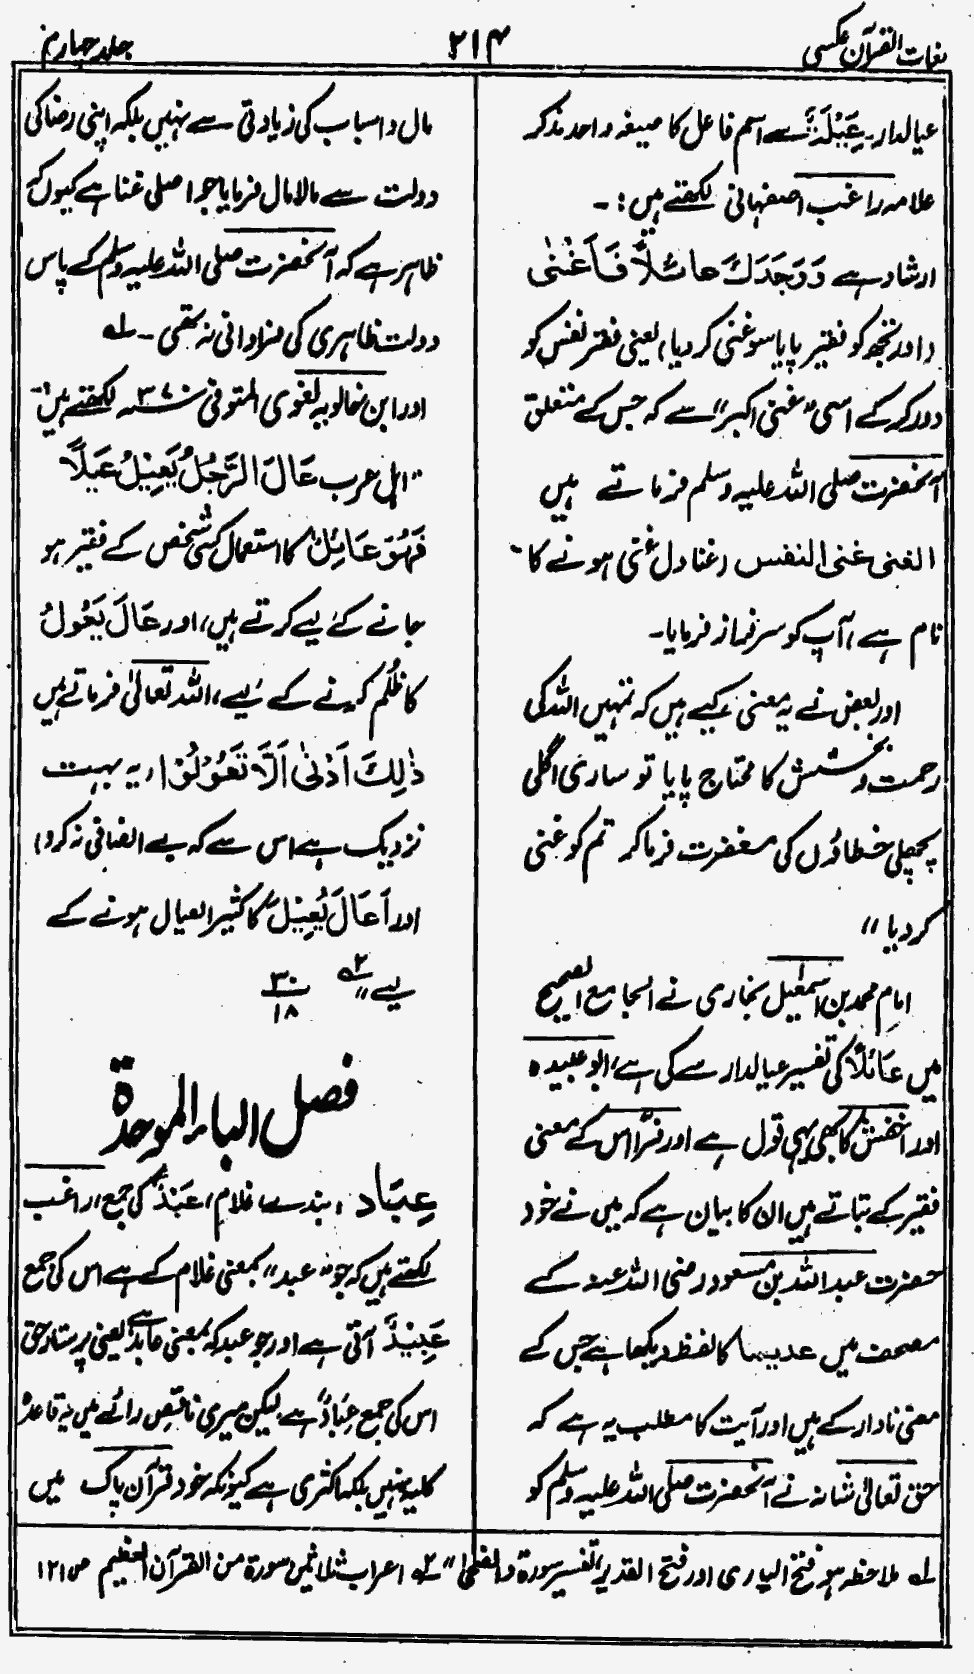 لغات القرآن عکسی
۲۱۴
جلد چہارم
عیالدار۔ عَیْلَۃٌ سے اسم فاعل کا صیغہ واحد مذکر
علامہ راغب اصفہانی لکھتے ہیں:۔
ارشاد ہے وَوَجَدَكَ عَائِلًا فَاَغْنٰی
(اور تجھ کو فقیر پایا سو غنی کر دیا) یعنی فقر نفس کو
دور کر کے اسی "غنی اکبر" سے کہ جس کے متعلق
آنحضرت صلی اللہ علیہ وسلم فرماتے ہیں
الغنی غنی النفس (غنا دل غنی ہونے کا
نام ہے) آپ کو سرفراز فرمایا۔
اور بعض نے یہ معنی کیے ہیں کہ تمہیں اللہ کی
رحمت و بخشش کا محتاج پایا تو ساری اگلی
پچھلی خطاؤں کی مغفرت فرما کر تم کو غنی
کر دیا"
امام محمد بن اسمٰعیل بخاری نے الجامع الصحیح
میں عَائِلًا کی تفسیر عیالدار سے کی ہے، ابو عبیدہ
اور اخفش کا بھی یہی قول ہے اور فرّا اس کے معنی
فقیر کے بتاتے ہیں ان کا بیان ہے کہ میں نے خود
حضرت عبداللہ بن مسعود رضی اللہ عنہ کے
مصحف میں عدیما کا لفظ دیکھا ہے جس کے
معنی نادار کے ہیں اور آیت کا مطلب یہ ہے کہ
حق تعالیٰ شانہ نے آنحضرت صلی اللہ علیہ وسلم کو
مال و اسباب کی زیادتی سے نہیں بلکہ اپنی رضا کی
دولت سے مالامال فرمایا جو اصلی غنا ہے کیوں کہ
ظاہر ہے کہ آنحضرت صلی اللہ علیہ وسلم کے پاس
دولت ظاہری کی فراوانی نہ تھی۔ لہ
اور ابن خالویہ لغوی المتوفی ۳۷۰ھ لکھتے ہیں:۔
"اہل عرب عَالَ الرَّجُلُ یَعِیْلُ عَیْلًا
فَهُوَ عَائِلٌ کا استعمال کسی شخص کے فقیر ہو
جانے کے لیے کرتے ہیں، اور عَالَ یَعُوْلُ
کا ظلم کرنے کے لیے، اللہ تعالیٰ فرماتے ہیں
ذٰلِكَ اَدْنٰی اَلَّا تَعُوْلُوْا (یہ بہت
نزدیک ہے اس سے کہ بے انصافی نہ کرو)
اور اَعَالَ یُعِیْلُ کا کثیر العیال ہونے کے
لیے" ۲ہ ۳۰/۱۸
فصل الباء الموحدۃ
عِبَاد، بندے، غلام، عَبْدٌ کی جمع، راغب
لکھتے ہیں کہ جو "عبد" بمعنی غلام کے ہے اس کی جمع
عَبِیْدٌ آتی ہے اور جو عبد کہ بمعنی عابد یعنی پرستار حق ہے
اس کی جمع عِبَادٌ ہے لیکن میری ناقص رائے میں یہ قاعدہ
کلیہ نہیں بلکہ اکثری ہے کیونکہ خود قرآن پاک میں
لہ ملاحظہ ہو فتح الباری اور فتح القدیر، تفسیر سورۃ والضحیٰ" ۲ہ اعراب ثلاثین سورۃ من القرآن العظیم ص ۱۲۱